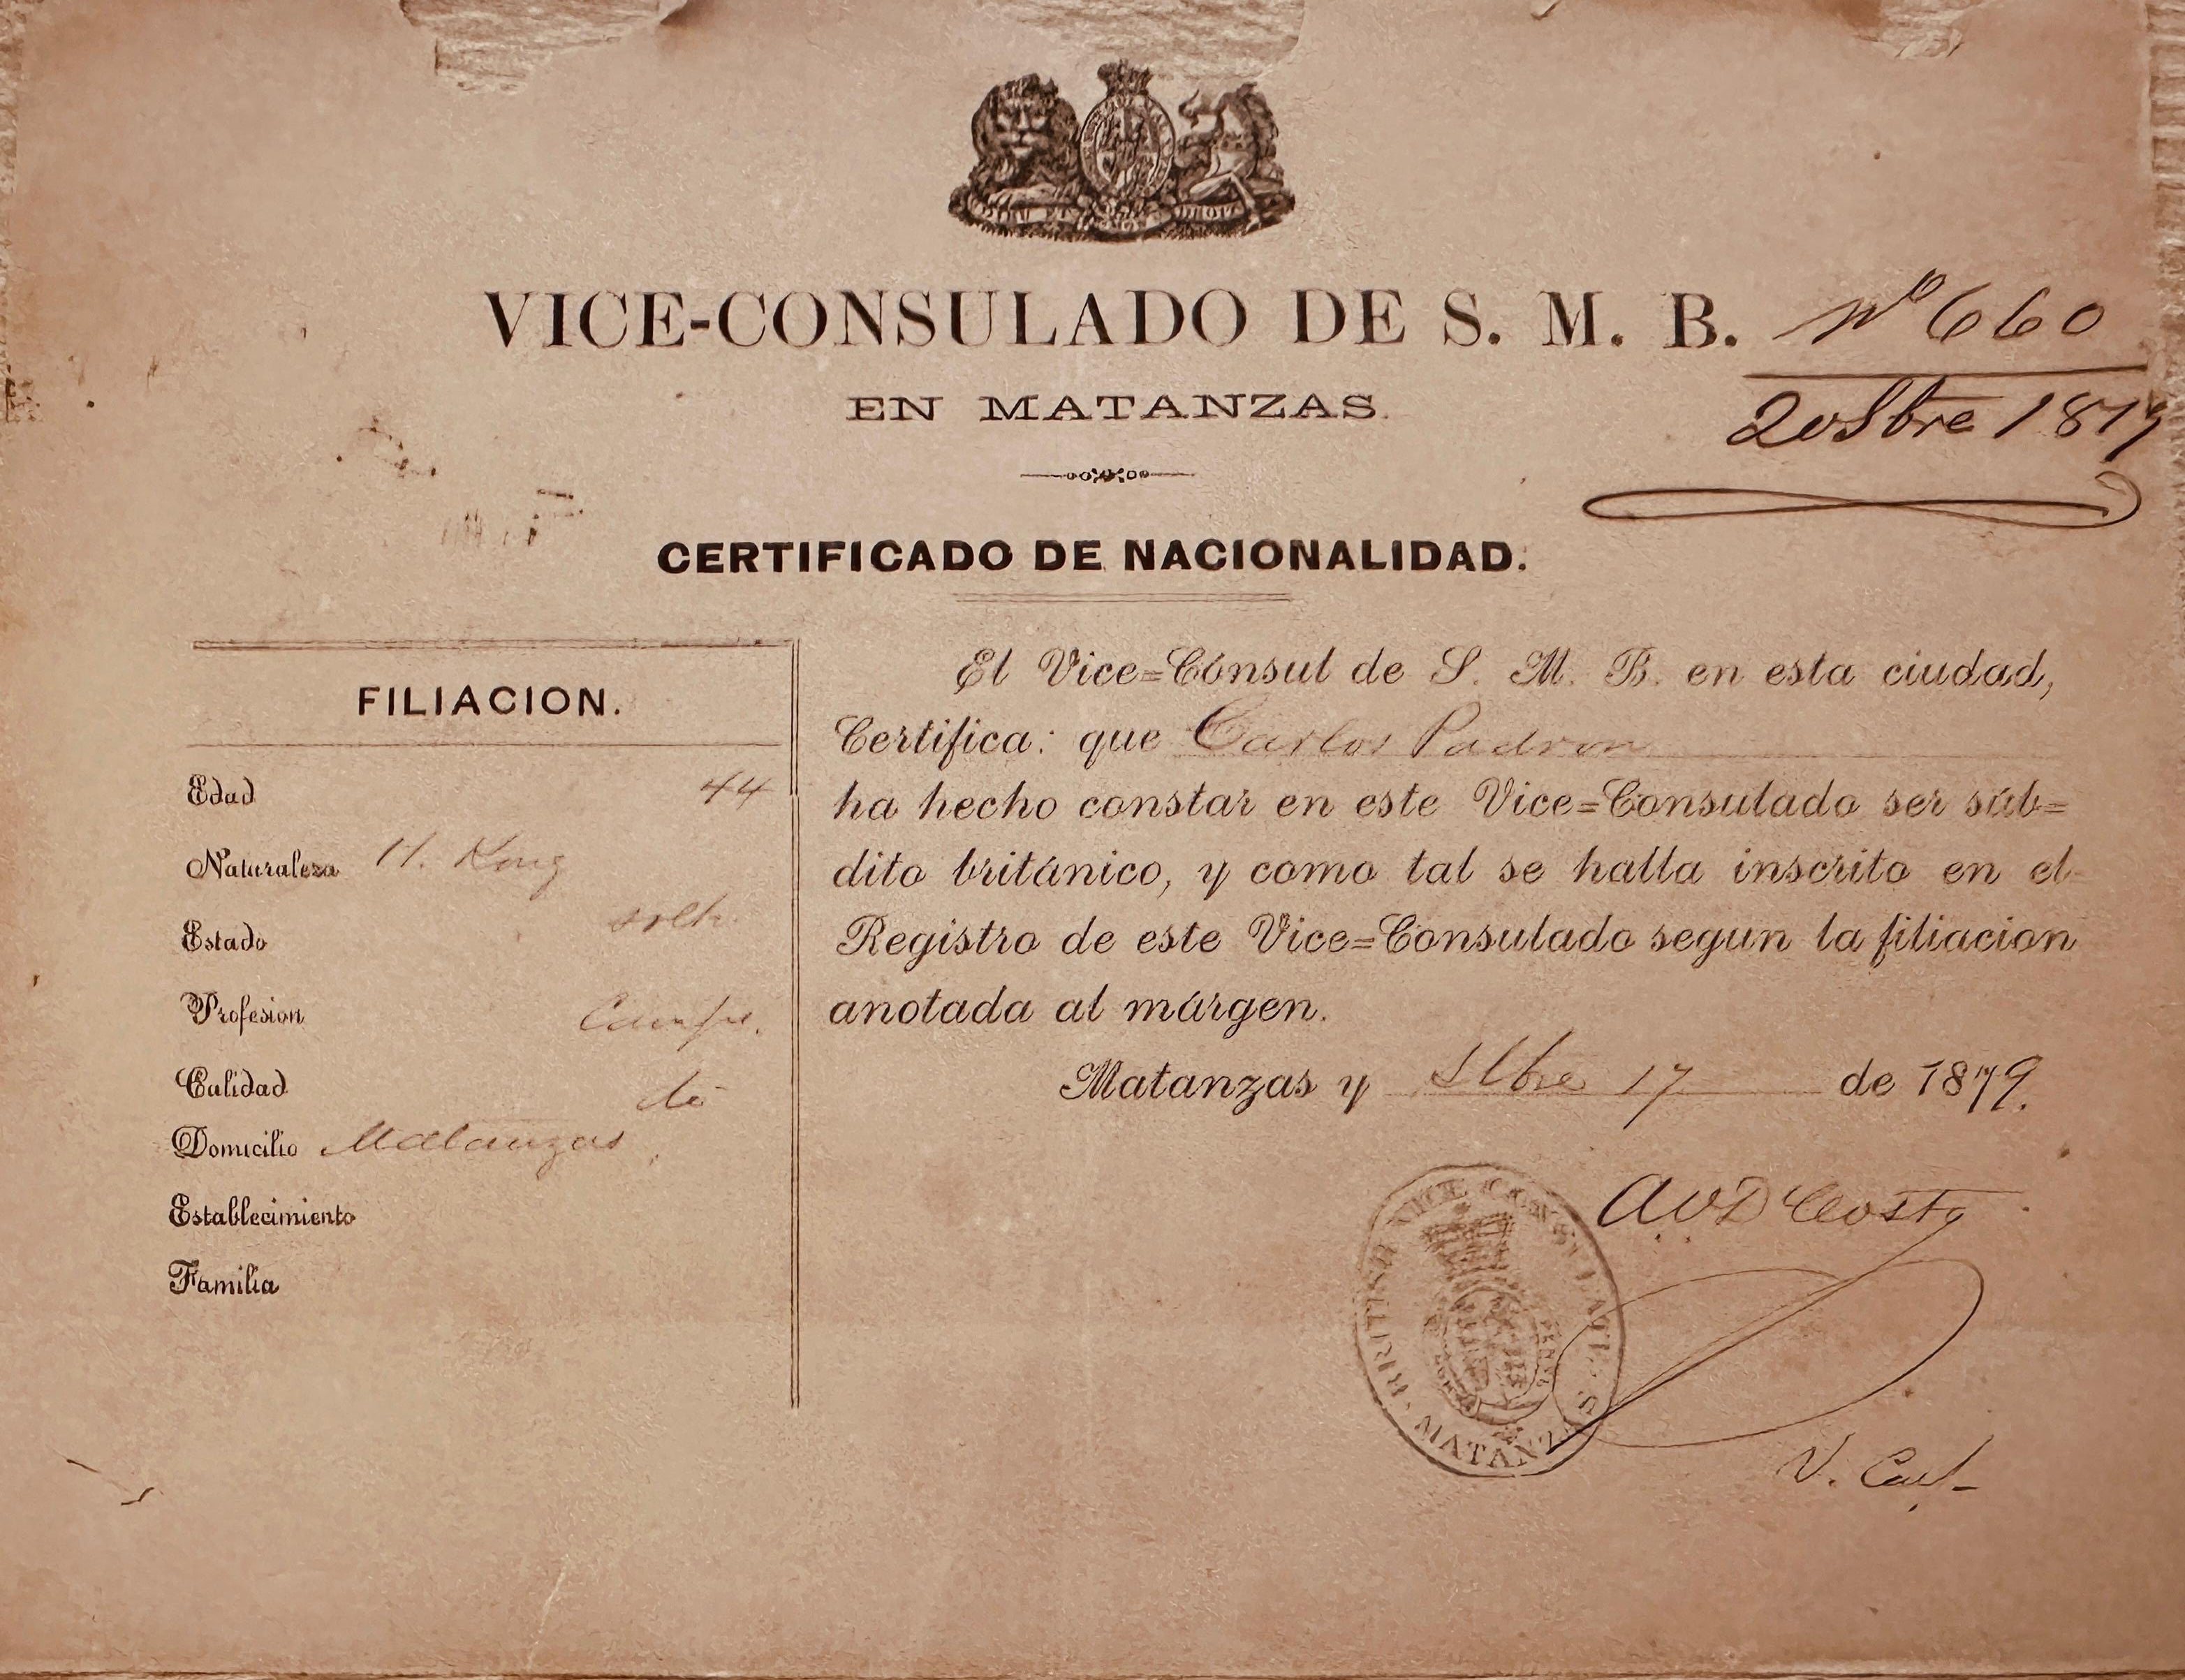 VICE-CONSULADO DE S. M. B.
Nº 660
EN MATANZAS.
20 Sbre 1879
CERTIFICADO DE NACIONALIDAD.
FILIACION.
Edad 44
Naturaleza H. Kong
Estado solt.
Profesion Campo.
Calidad
Domicilio Matanzas
Establecimiento
Familia
El Vice=Cónsul de S. M. B. en esta ciudad,
Certifica: que Carlos Padron
ha hecho constar en este Vice=Consulado ser súb=
dito británico, y como tal se halla inscrito en el
Registro de este Vice=Consulado segun la filiacion
anotada al márgen.
Matanzas y Stbre 17 de 1879.
BRITISH VICE CONSULATE
MATANZAS
V. Consl